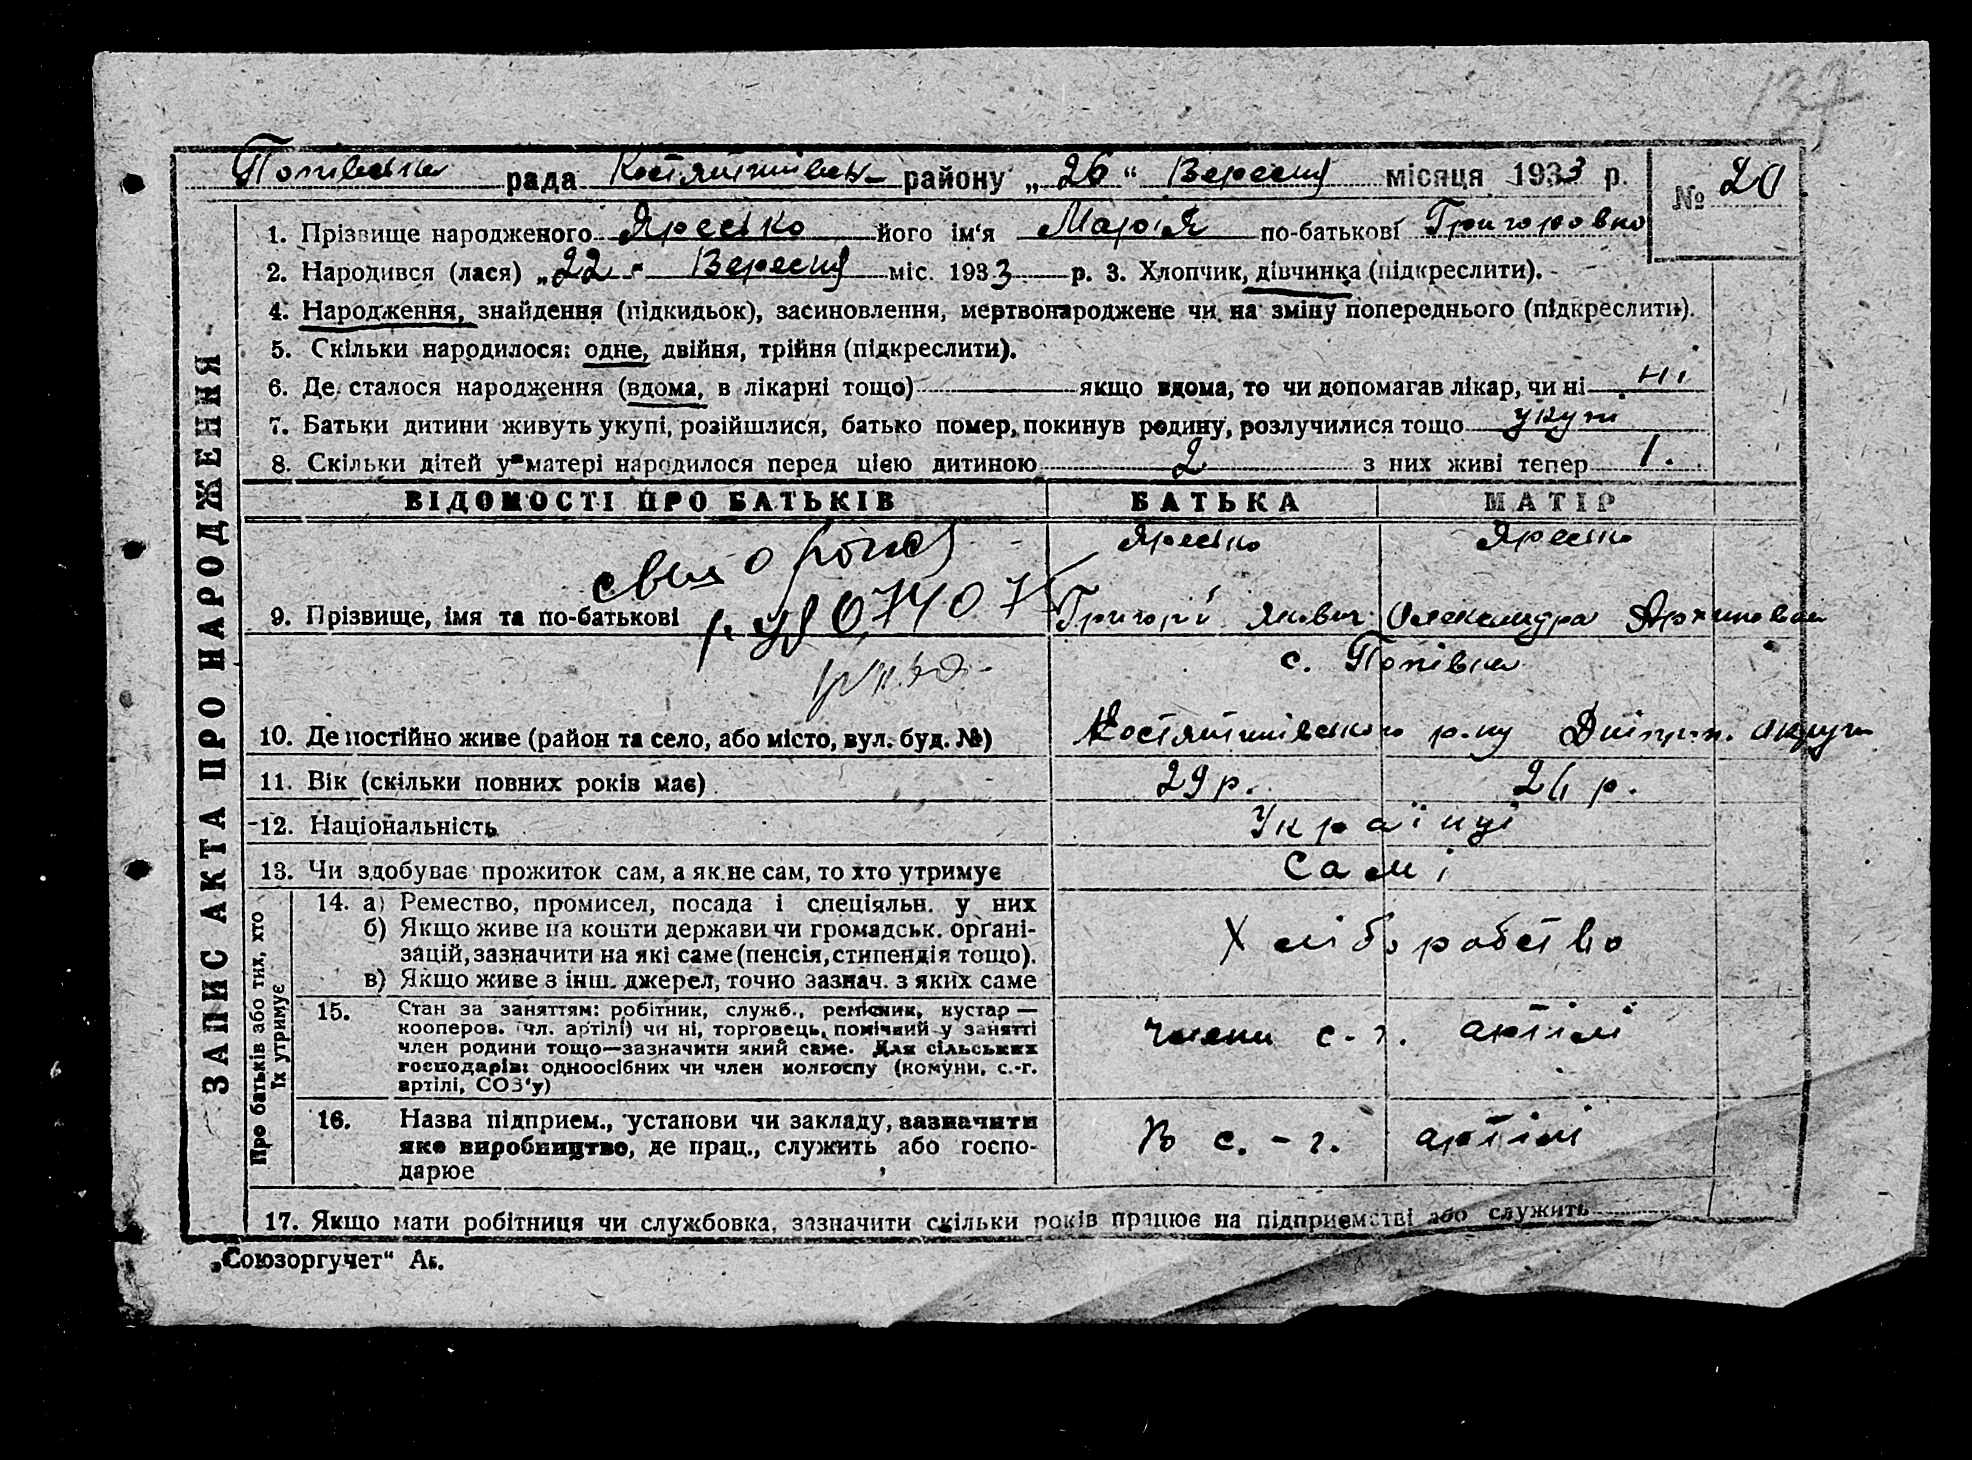 132
Попівська рада Костянтинівськ. району „26“ Вересня місяця 1933 р. № 20
1. Прізвище народженого Яресько його ім‘я Марія по-батькові Григоровна
2. Народився (лася) „22“ Вересня міс. 1933 р. 3. Хлопчик, дівчинка (підкреслити).
4. Народження, знайдення (підкидьок), засиновлення, мертвонароджене чи на зміну попереднього (підкреслити).
5. Скільки народилося: одне, двійня, трійня (підкреслити).
6. Де сталося народження (вдома, в лікарні тощо) якщо вдома, то чи допомагав лікар, чи ні ні
7. Батьки дитини живуть укупі, розійшлися, батько помер, покинув родину, розлучилися тощо укупі
8. Скільки дітей у матері народилося перед цією дитиною 2 з них живі тепер 1.
ЗАПИС АКТА ПРО НАРОДЖЕННЯ
ВІДОМОСТІ ПРО БАТЬКІВ БАТЬКА МАТІР
Яресько Яресько
9. Прізвище, імя та по-батькові Григорій Якович Олександра Архиповна
с. Попівка
10. Де постійно живе (район та село, або місто, вул. буд. №) Костянтинівського р-ну
11. Вік (скільки повних років має) 29 р. 26 р.
12. Національність Українці
13. Чи здобуває прожиток сам, а як не сам, то хто утримує Самі
Про батьків або тих, хто
їх утримує
14. а) Ремество, промисел, посада і спеціяльн. у них
б) Якщо живе на кошти держави чи громадськ. орґані-
зацій, зазначити на які саме (пенсія, стипендія тощо). Хліборобство
в) Якщо живе з інш. джерел, точно зазнач. з яких саме
15. Стан за заняттям: робітник, служб., ремісник, кустар —
кооперов. (чл. артілі) чи ні, торговець, помічний у занятті члени с.-г. артілі
член родини тощо—зазначити який саме. Для сільських
господарів: одноосібних чи член колгоспу (комуни, с.-г.
артілі, СОЗ‘у)
16. Назва підприєм., установи чи закладу, зазначити
яке виробництво, де прац., служить або госпо- В с.-г. артілі
дарює
17. Якщо мати робітниця чи службовка, зазначити скільки років працює на підприємстві або служить
„Союзоргучет“